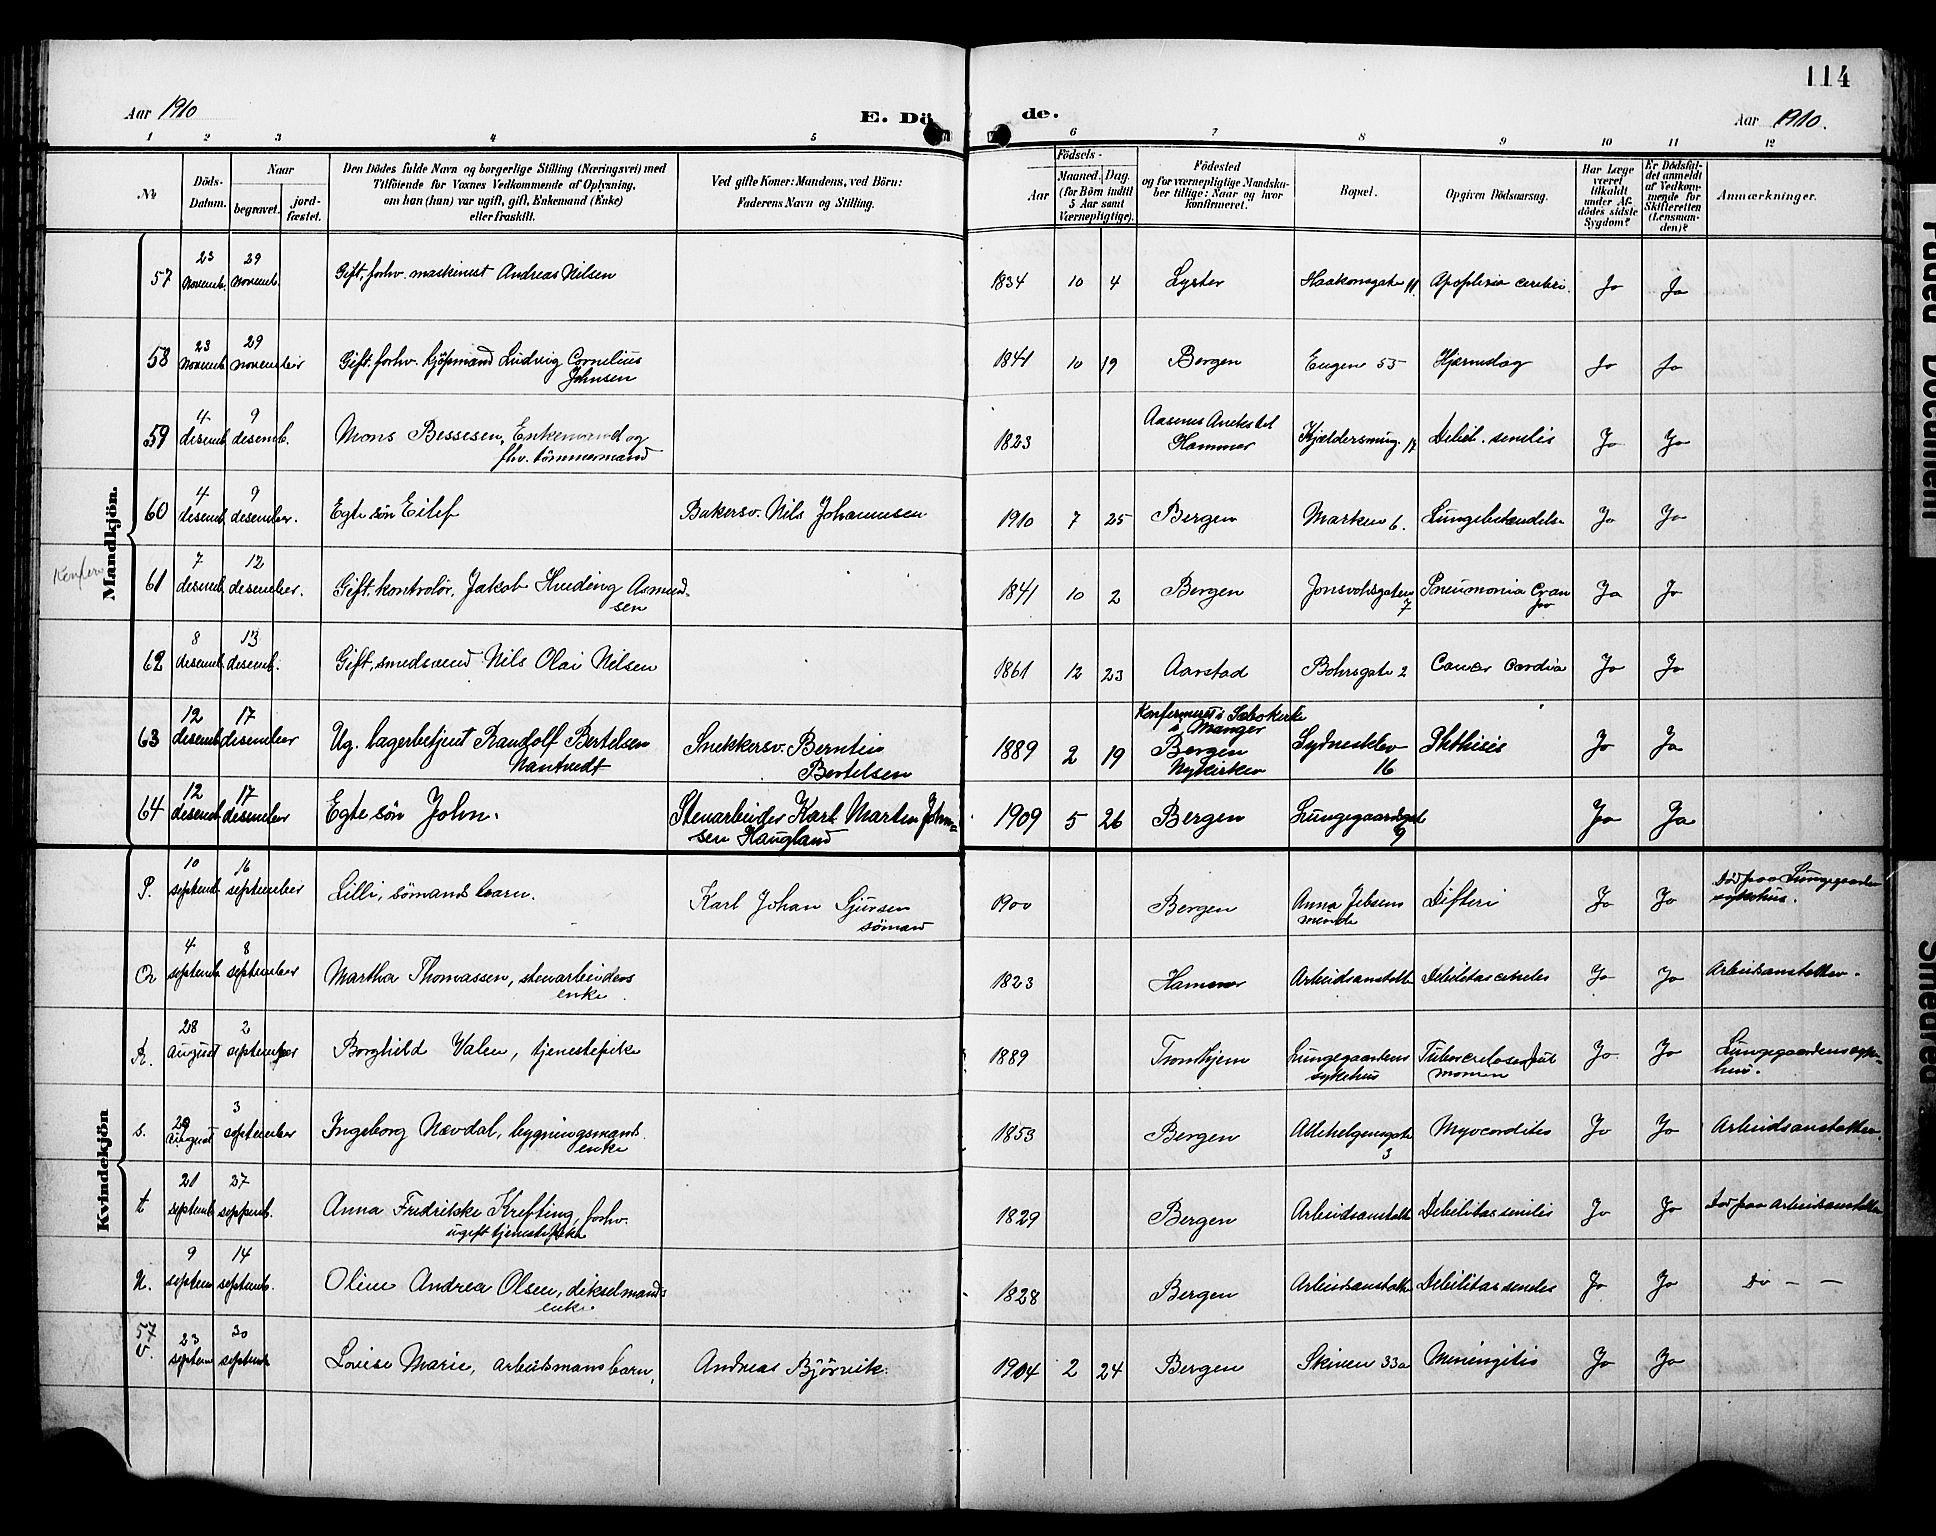 114
Aar 1910
E. Dö
de.
Aar 1910.
1 2 3 4 5 6 7 8 9 10 11 12
No
Döds-
Datum.
Naar
begravet.
jord-
fæstet.
Den Dödes fulde Navn og borgerlige Stilling (Næringsvei) med
Tilföiende for Voxnes Vedkommende af Oplysning,
om han (hun) var ugift, gift, Enkemand (Enke)
eller fraskilt.
Ved gifte Koner: Mandens, ved Börn:
Faderens Navn og Stilling.
Födsels-
Aar
Maaned. Dag.
(for Börn indtil
5 Aar samt
Værnepligtige).
Födested
og for værnepligtige Mandska-
ber tillige: Naar og hvor
konfirmeret.
Bopæl.
Opgiven Dödsaarsag.
Har Læge
været
tilkaldt
under Af-
dödes sidste
Sygdom?
Er Dödsfal-
det anmeldt
af Vedkom-
mende for
Skifteretten
(Lensman-
den)?
Anmærkninger.
Mandkjön.
57 23 novemb. 29 novemb. Gift, forhv. maskinist Andreas Nilsen 1834 10 4 Lyster Haakonsgate 11 Apoplexia cerebri. Ja Ja
58 23 novemb. 29 november Gift. forhv. kjøpmand Ludvig Cornelius
Johnsen 1841 10 19 Bergen Engen 55 Hjerneslag Ja Ja
59 4 desemb. 9 desemb. Mons Bessesen, Enkemand og
fhv. tömmermand 1823 Aasene Anekstet
Hammer Kjældersmug. 17 Debil. senilis Ja Ja
60 4 desemb. 9 desember. Egte søn Eilef Bakersv. Nils Johannesen 1910 7 25 Bergen Marken 6. Lungebetændelse Ja Ja
61 7 desemb. 12 desember. Gift. kontrolør, Jakob Hviding Asmund-
sen 1841 10 2 Bergen Jonsvolsgaten
7 Pneumonia Ja Ja
62 8 desemb. 13 desemb. Gift, smedsvend Nils Olai Nilsen 1861 12 23 Aarstad Bohrsgate 2 Cancer Cardia Ja Ja
63 12 desemb. 17 desember Ug. lagerbetjent Randolf Bertelsen
Mantvedt Snekkersv. Berntin
Bertelsen 1889 2 19 Konfirmeret i Sæbø kirke
i Manger
Bergen
Nykirken Sydnesklev
16 Phthisis Ja Ja
64 12 desemb. 17 desember Egte søn John. Stenarbeider Karl Martin John-
sen Haugland 1909 5 26 Bergen Lungegaardsgt
9 Ja Ja
Kvindekjön
P. 10 septemb. 16 september Lilli, sømands barn. Karl Johan Sjursen
sømand 1900 Bergen Anna Jebsens
minde Difteri Ja Ja Død paa Lungegaarden
sykehus.
4 septemb. 8 september Martha Thomassen, stenarbeiders
enke. 1823 Hammer Arbeidsanstalten Debilitas senilis Ja Ja Arbeidsanstalten.
R. 28 August 2 september Borghild Valen, tjenestepike 1889 Tronhjem Lungegaardens
sykehus Tuberculosis pul
monum Ja Ja Lungegaardens syke-
hus.
s. 29 August 3 september Ingeborg Nævdal, bygningsmands
enke 1853 Bergen Allehelgensgate
3 Myocarditis Ja Ja Arbeidsanstalten.
t 21 septemb. 27 septemb. Anna Fredrikke Krefting, forhv.
ugift tjenestepike 1829 Bergen Arbeidsanstalten Debilitas senilis Ja Ja Død paa Arbeidsanstalten
U. 9 septem 14 septemb. Oline Andrea Olsen, dikselmands
enke 1828 Bergen Arbeidsanstalten Debilitas senilis Ja Ja Do – –
57
v. 23 septem 30 septemb Lovise Marie, arbeidsmans barn, Andreas Bjørvik. 1904 2 24 Bergen Skiven 33a Meningitis Ja Ja
Faded Document
Smeared